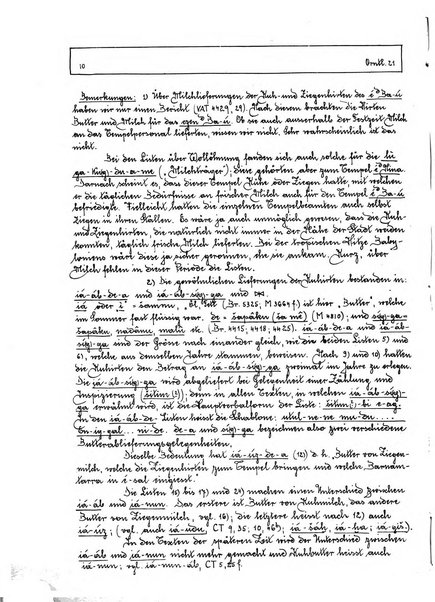 10 Orntl. 21
Bemerkungen: 1) Über Milchlieferungen der Kuh- und Ziegenhirten des é ᵈBa-ú
haben wir nur einen Bericht (VAT 4429, 29). Nach diesem brachten die Hirten
Butter und Milch für das ezen ᵈBa-ú. Ob sie auch ausserhalb der Festzeit Milch
an das Tempelpersonal lieferten, wissen wir nicht. Sehr wahrscheinlich ist das
nicht.
Bei den Listen über Wollöhnung fanden sich auch solche für die lù
ga- -du-a-me (, Milchträger); diese gehörten aber zum Tempel é ᵈNina.
Darnach scheint es, dass dieser Tempel Kühe oder Ziegen hatte, mit welchen
er die täglichen Bedürfnisse an frischer Milch auch des Tempels é ᵈBa-ú
befriedigte. Vielleicht hatten die einzelnen Tempelbeamten auch selbst
Ziegen in ihren Ställen. Es wäre ja auch unmöglich gewesen, dass die Kuh-
und Ziegenhirten, die natürlich nicht immer in der Nähe der Stadt weiden
konnten, täglich frische Milch lieferten. Bei der tropischen Hitze Baby-
loniens wäre diese ja sicher geronnen, ehe sie ankam. Kurz, über
Milch fehlen in dieser Periode die Listen.
2) Die gewöhnlichen Lieferungen der Kuhirten bestanden in:
iá-áb-de-a und iá-áb-sig-ga und
iá oder ì = šamnu, „Öl, Fett" (Br. 5325, M 3669 f) ist hier „Butter", welche
im Sommer fast flüssig war. de = šapáku (ša mê) (M 4810); und sig-ga =
šapáku, nadânu, malû etc. (Br. 4415, 4418, 4425). iá-áb-de-a und iá-áb-
sig-ga sind der Gröne nach einander gleich, wie die beiden Listen 5) und
6), welche aus demselben Jahre stammen, beweisen. Nach 9) und 10) hatten
die Kuhirten den Betrag an iá-áb-sig-ga zweimal im Jahre zu erlegen.
Die iá-áb-sig-ga wird abgeliefert bei Gelegenheit einer Zählung und
Inspizierung (šitim(!)); denn in allen Texten, in welchen iá-áb-sig-
ga erwähnt wird, ist die Hauptsorballone der Liste: šitim(!)-bi e-ag.
In den iá-áb-de-Listen heisst die Schablone: utul-ne-ne mu-du...
En-ig-gal... ni-de. de-a und sig-ga bezeichnen also zwei verschiedene
Butterablieferungsgelegenheiten.
Dieselbe Bedeutung hat iá-uz-de-a (12) d. h. „Butter von Ziegen-
milch, welche die Ziegenhirten zum Tempel bringen und welche Barnam-
tarra in é-sal eingiesst.
Die Listen 15) bis 17) und 24) machen einen Unterschied zwischen
iá-áb und iá-nun. Das erstere ist Butter von Kuhmilch, das andere
Butter von Ziegenmilch, vgl. 16); die letztere heisst nach 12) auch
iá-uz; (vgl. auch iá-udu, CT 9, 35; 10, 69); iá-šáh, iá-ha; iá-giš).
In den Texten der späteren Zeit wird der Unterschied zwischen
iá-áb und iá-nun nicht mehr gemacht und Kuhbutter heisst auch
iá-nun; vgl. iá-nun-áb, CT 5, 25 f.